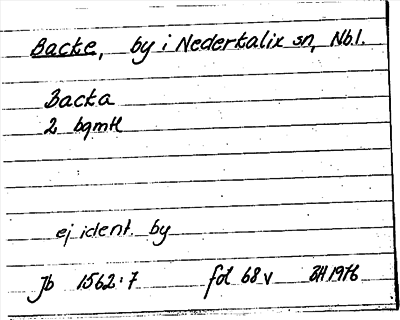 Backe, by i Nederkalix sn, Nb.l.
Backa
2 bqmtl
ej ident. by
Jb 1562:7 fol 68 v BH 1976